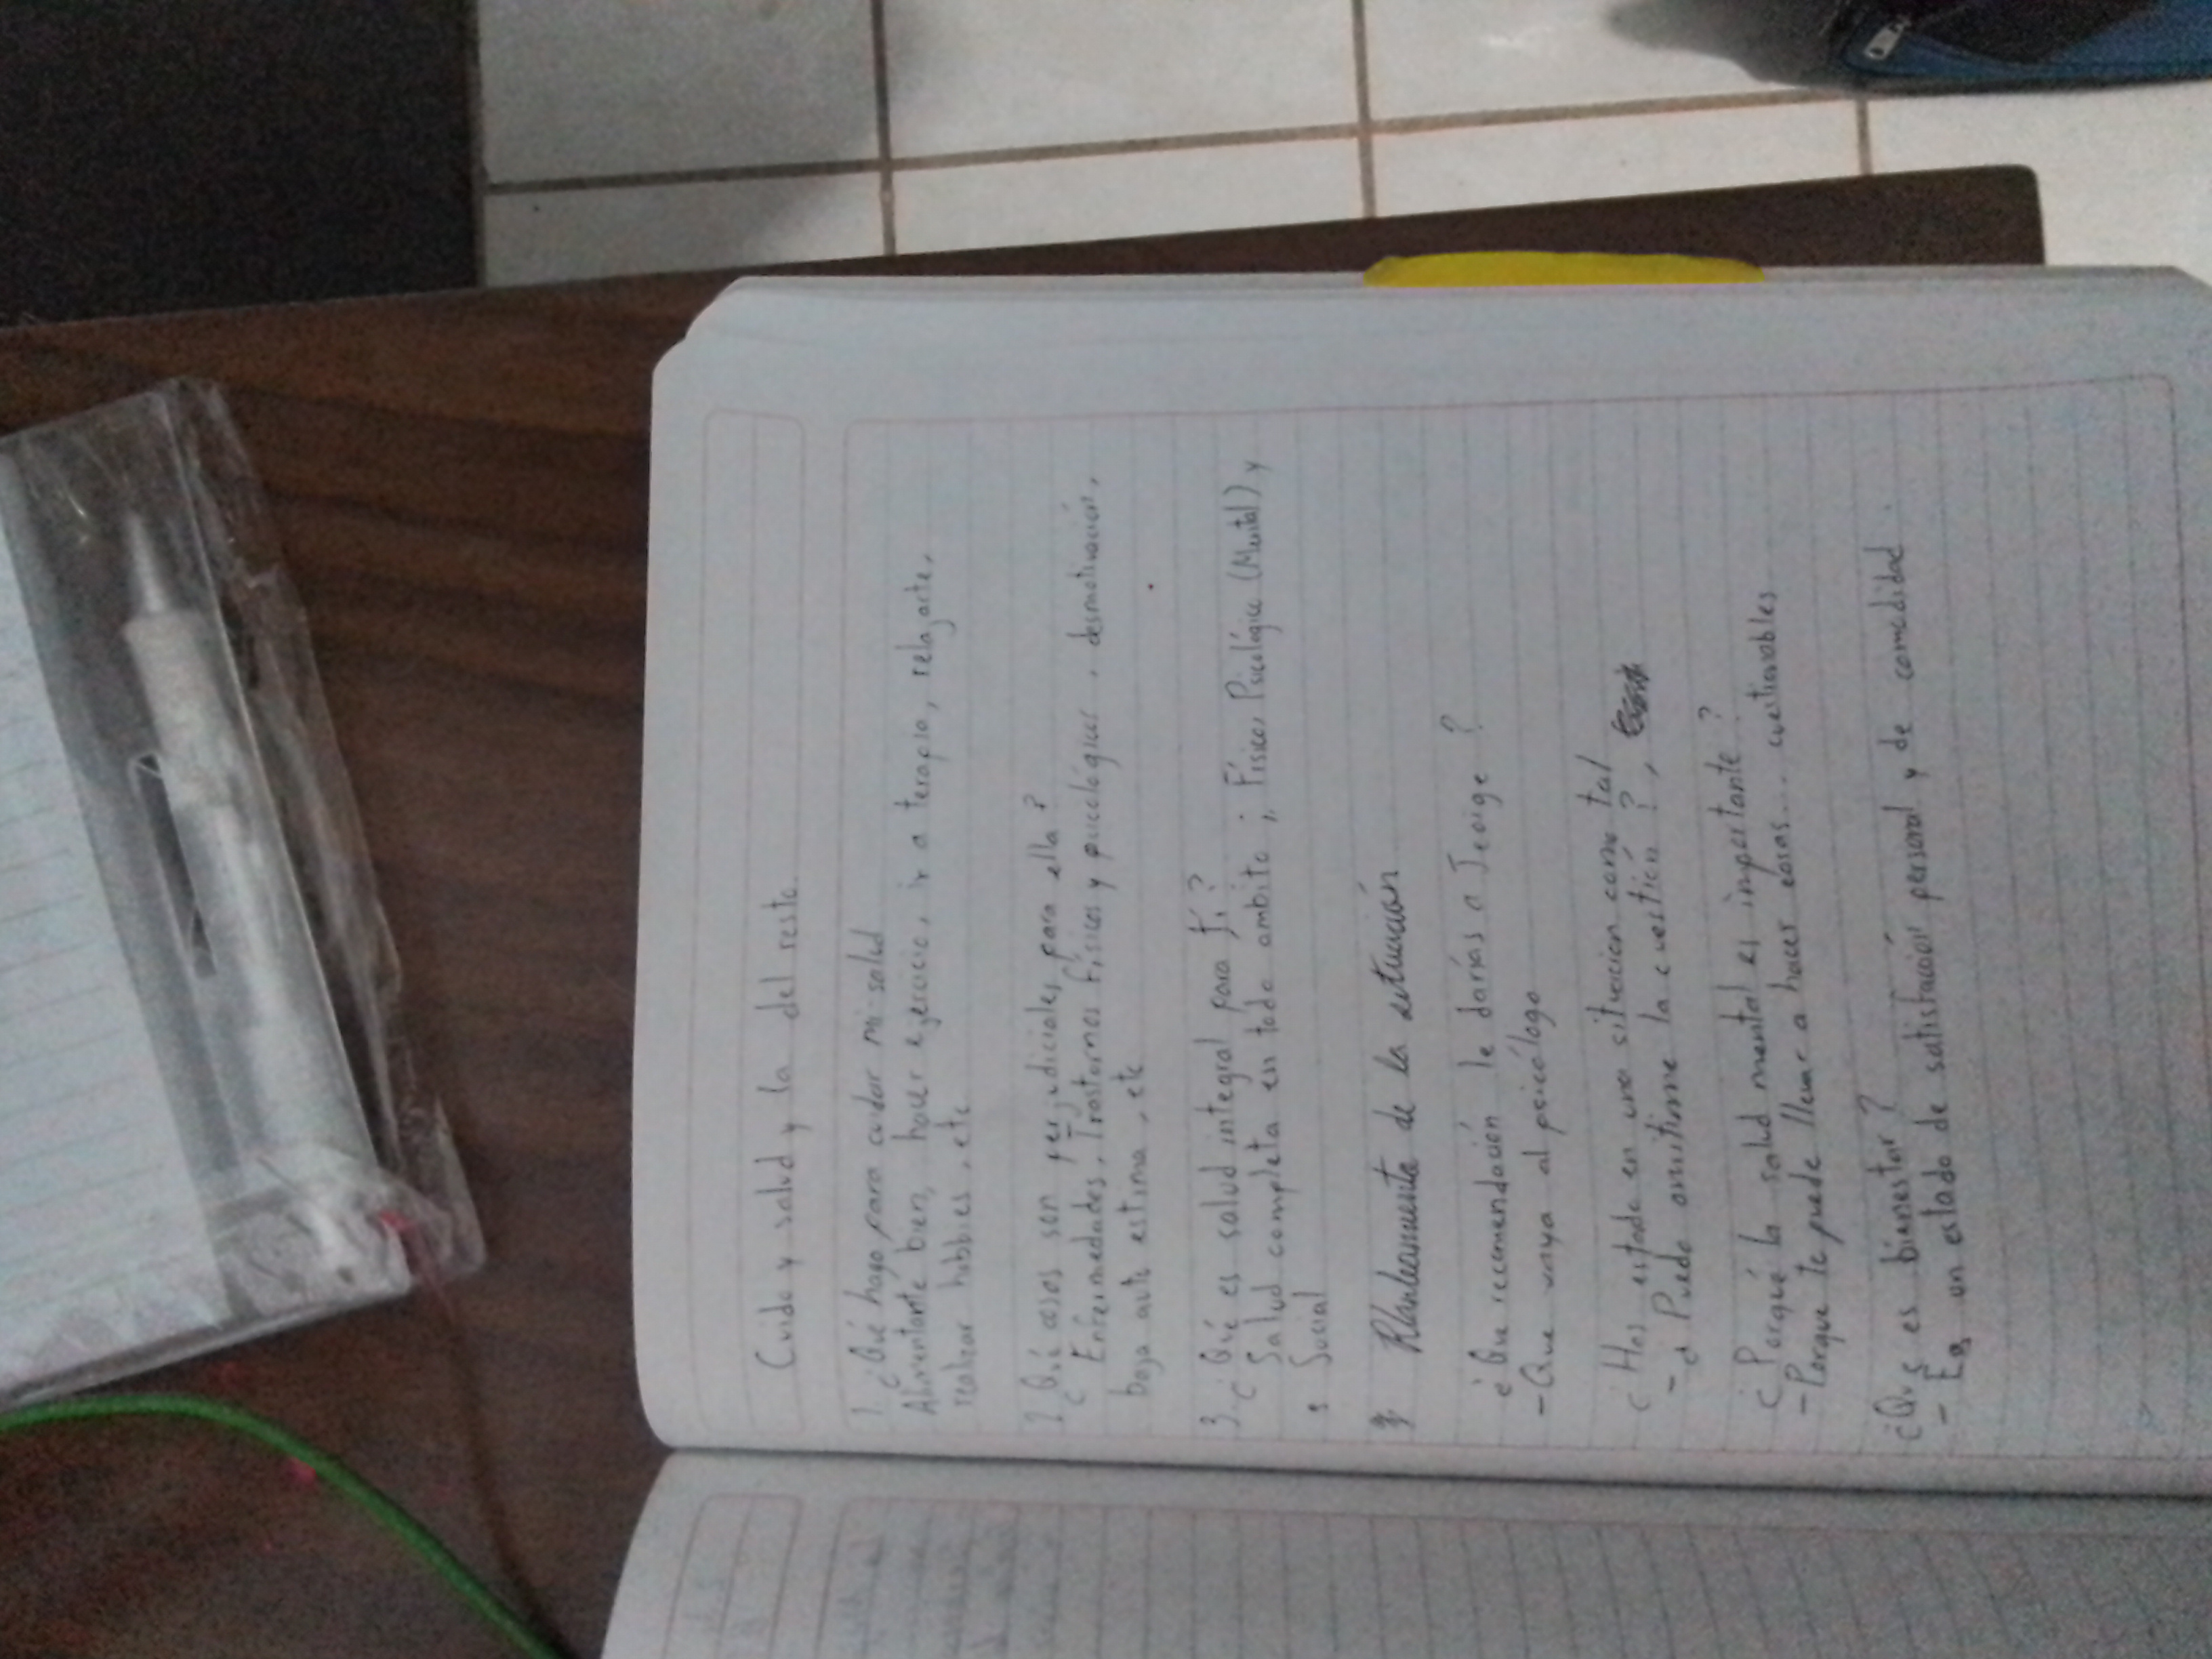 Cuido y salud y la del resto.
1. ¿Qué hago para cuidar mi salud
Alimentarte bien, hacer ejercicio, ir a terapia, relajarte,
realizar hobbies, etc
2. ¿Qué cosas son perjudiciales para ella?
Enfermedades, Trastornos físicos y psicológicos, desmotivación,
baja autoestima, etc
3. ¿Qué es salud integral para ti?
Salud completa en todo ambito; Físico, Psicológico (Mental) y
Social
Planteamiento de la situación
¿Que recomendación le darías a Jeorge?
- Que vaya al psicólogo
¿Has estado en una situacion como tal
- ¿Puedo omitirme la cuestión?,
¿Porqué la salud mental es importante?
- Porque te puede llevar a hacer cosas... cuestionables
¿Qué es bienestar?
- Es un estado de satisfacción personal y de comodidad.